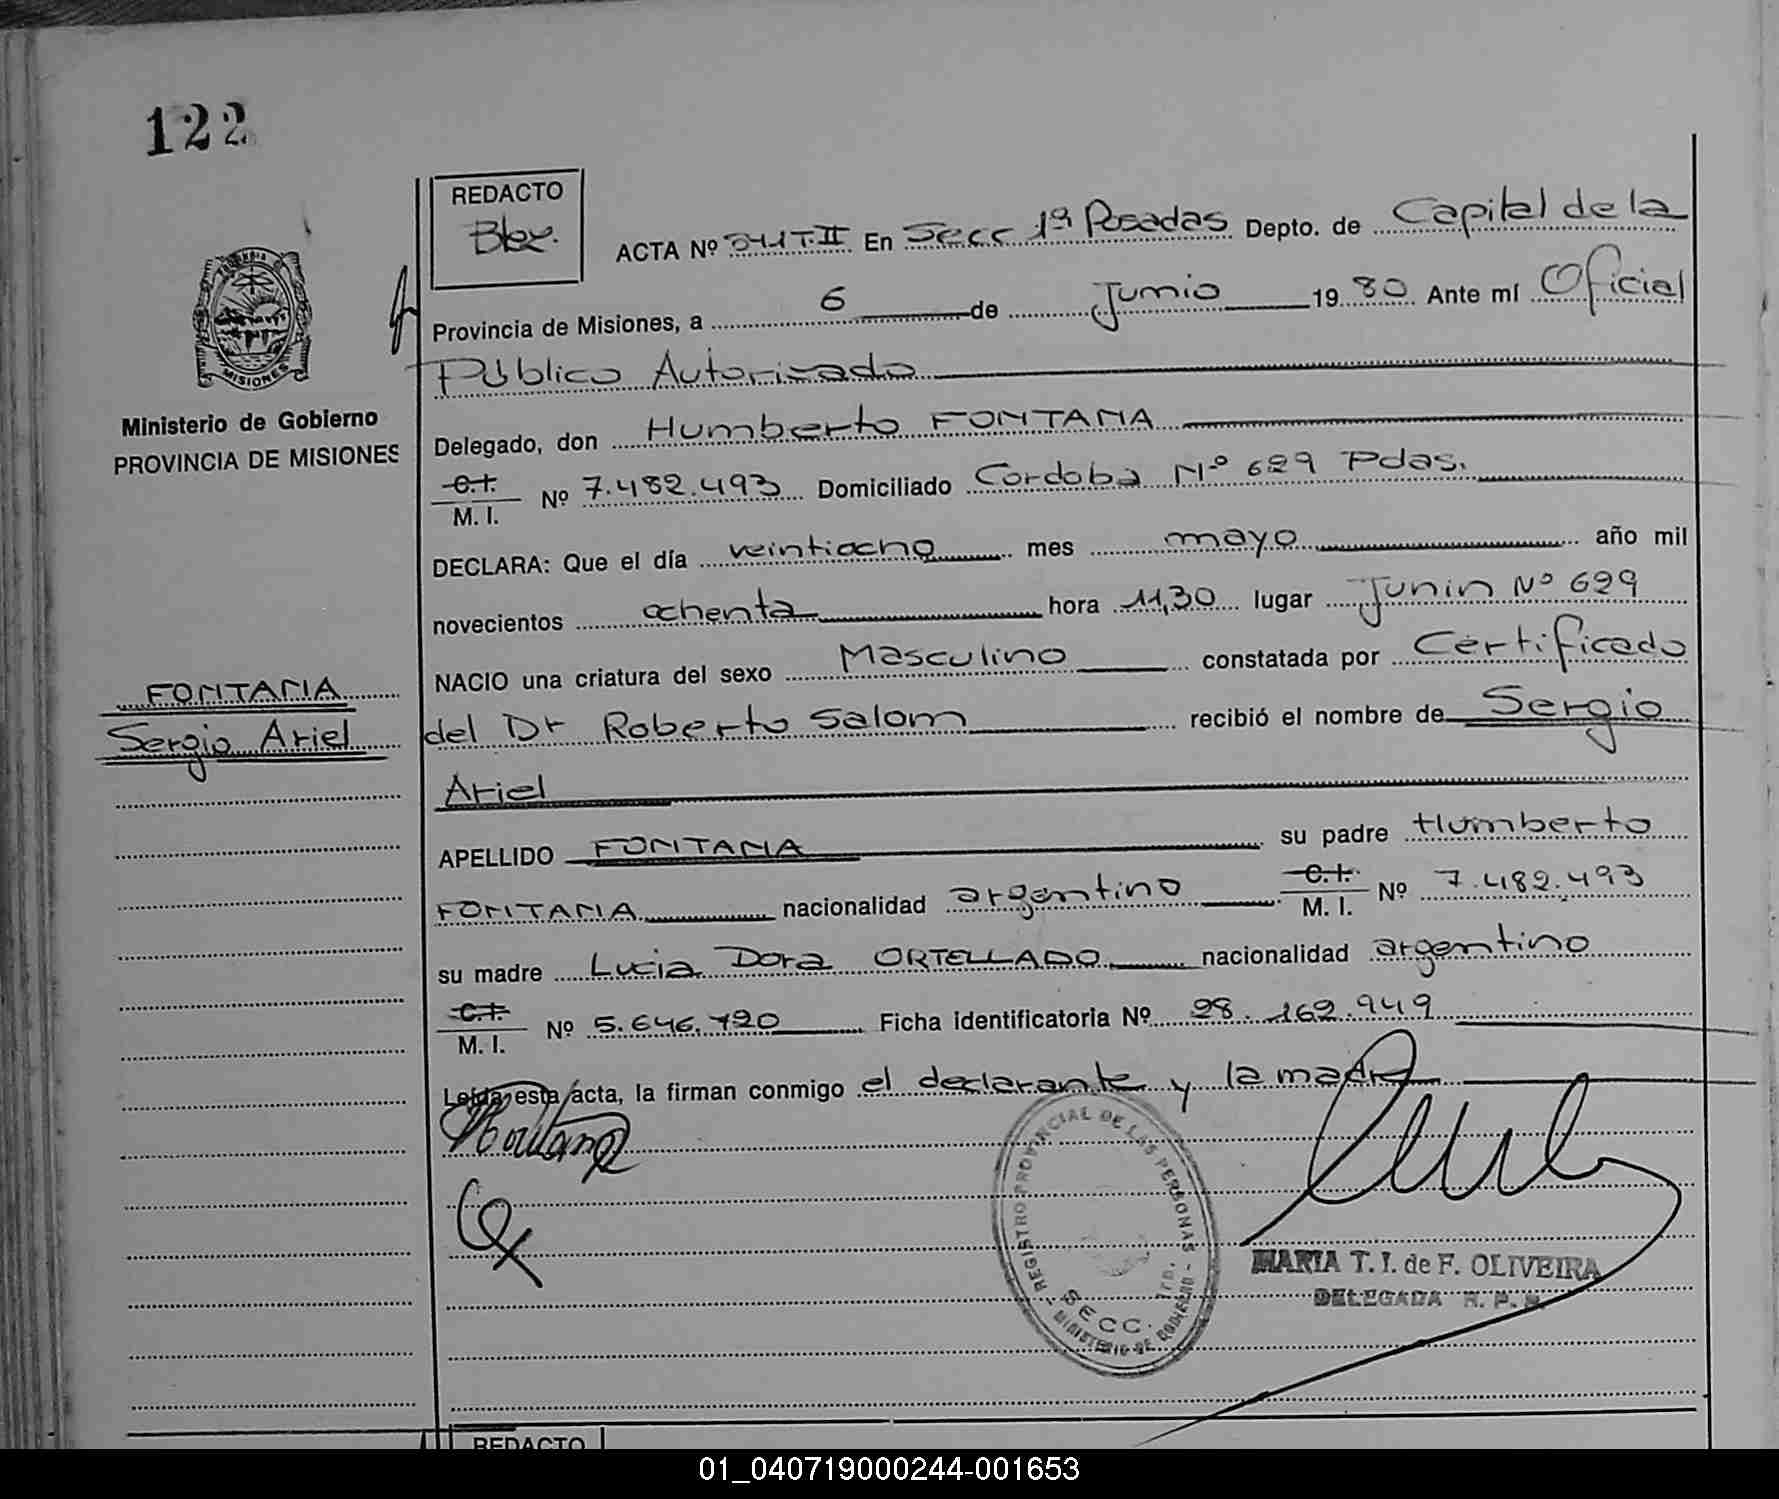 122
REDACTO
Blex.
ACTA Nº 341 T.II En Secc 1ª Posadas Depto. de Capital de la
Provincia de Misiones, a 6 de Junio 1980 Ante mí Oficial
Público Autorizado
MISIONES
Ministerio de Gobierno
PROVINCIA DE MISIONES
Delegado, don Humberto FONTANA
C.I. M. I. Nº 7.482.493 Domiciliado Cordoba Nº 629 Pdas.
DECLARA: Que el día veintiocho mes mayo año mil
novecientos ochenta hora 11,30 lugar Junin Nº 699
NACIO una criatura del sexo Masculino constatada por Certificado
FONTANA
Sergio Ariel
del Dr Roberto Salom recibió el nombre de Sergio
Ariel
APELLIDO FONTANA su padre Humberto
FONTANA nacionalidad argentino C.I. M. I. Nº 7.482.493
su madre Lucia Dora ORTELLADO nacionalidad argentino
C.I. M. I. Nº 5.646.720 Ficha identificatoria Nº 28.162.949
Leída esta acta, la firman conmigo el declarante y la madre
REGISTRO PROVINCIAL DE LAS PERSONAS
SECC.
MINISTERIO DE GOBIERNO
MARIA T. I. de F. OLIVEIRA
DELEGADA R. P. P.
REDACTO
01_040719000244-001653